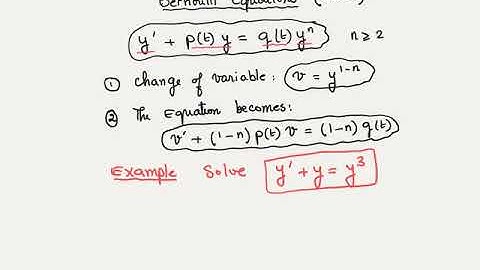 Bernoulli Equations
y' + p(t) y = q(t) yⁿ n ≥ 2
① Change of variable: v = y¹⁻ⁿ
② The Equation becomes:
v' + (1-n) p(t) v = (1-n) q(t)
Example Solve y' + y = y³